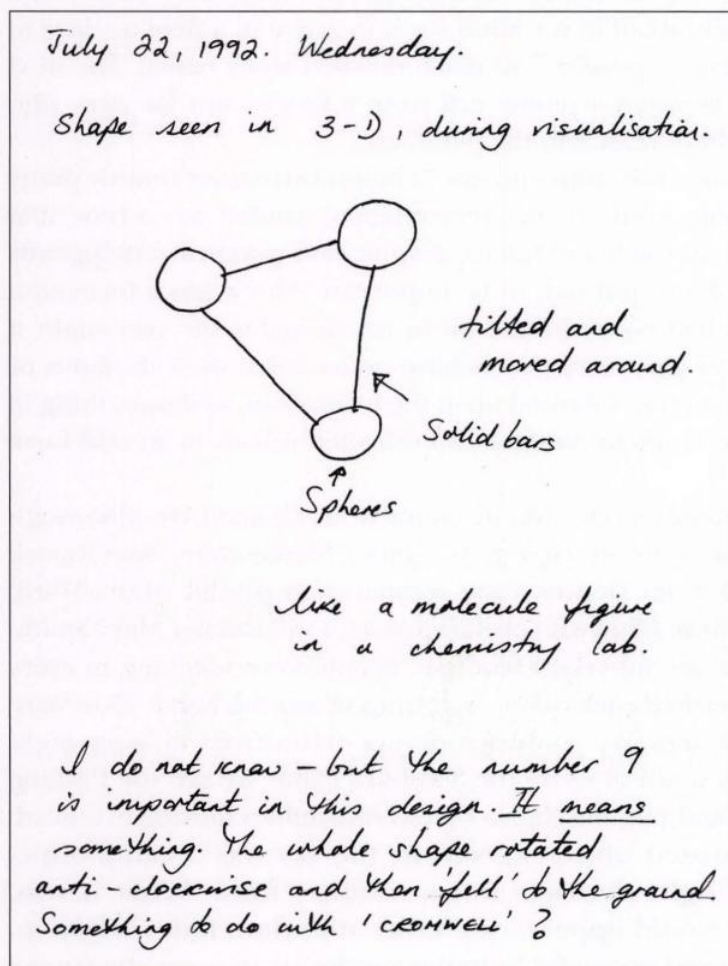 July 22, 1992. Wednesday.
Shape seen in 3-D, during visualisation.
tilted and
moved around.
Solid bars
Spheres
like a molecule figure
in a chemistry lab.
I do not know - but the number 9
is important in this design. It means
something. The whole shape rotated
anti-clockwise and then 'fell' to the ground.
Something to do with 'CROMWELL'?